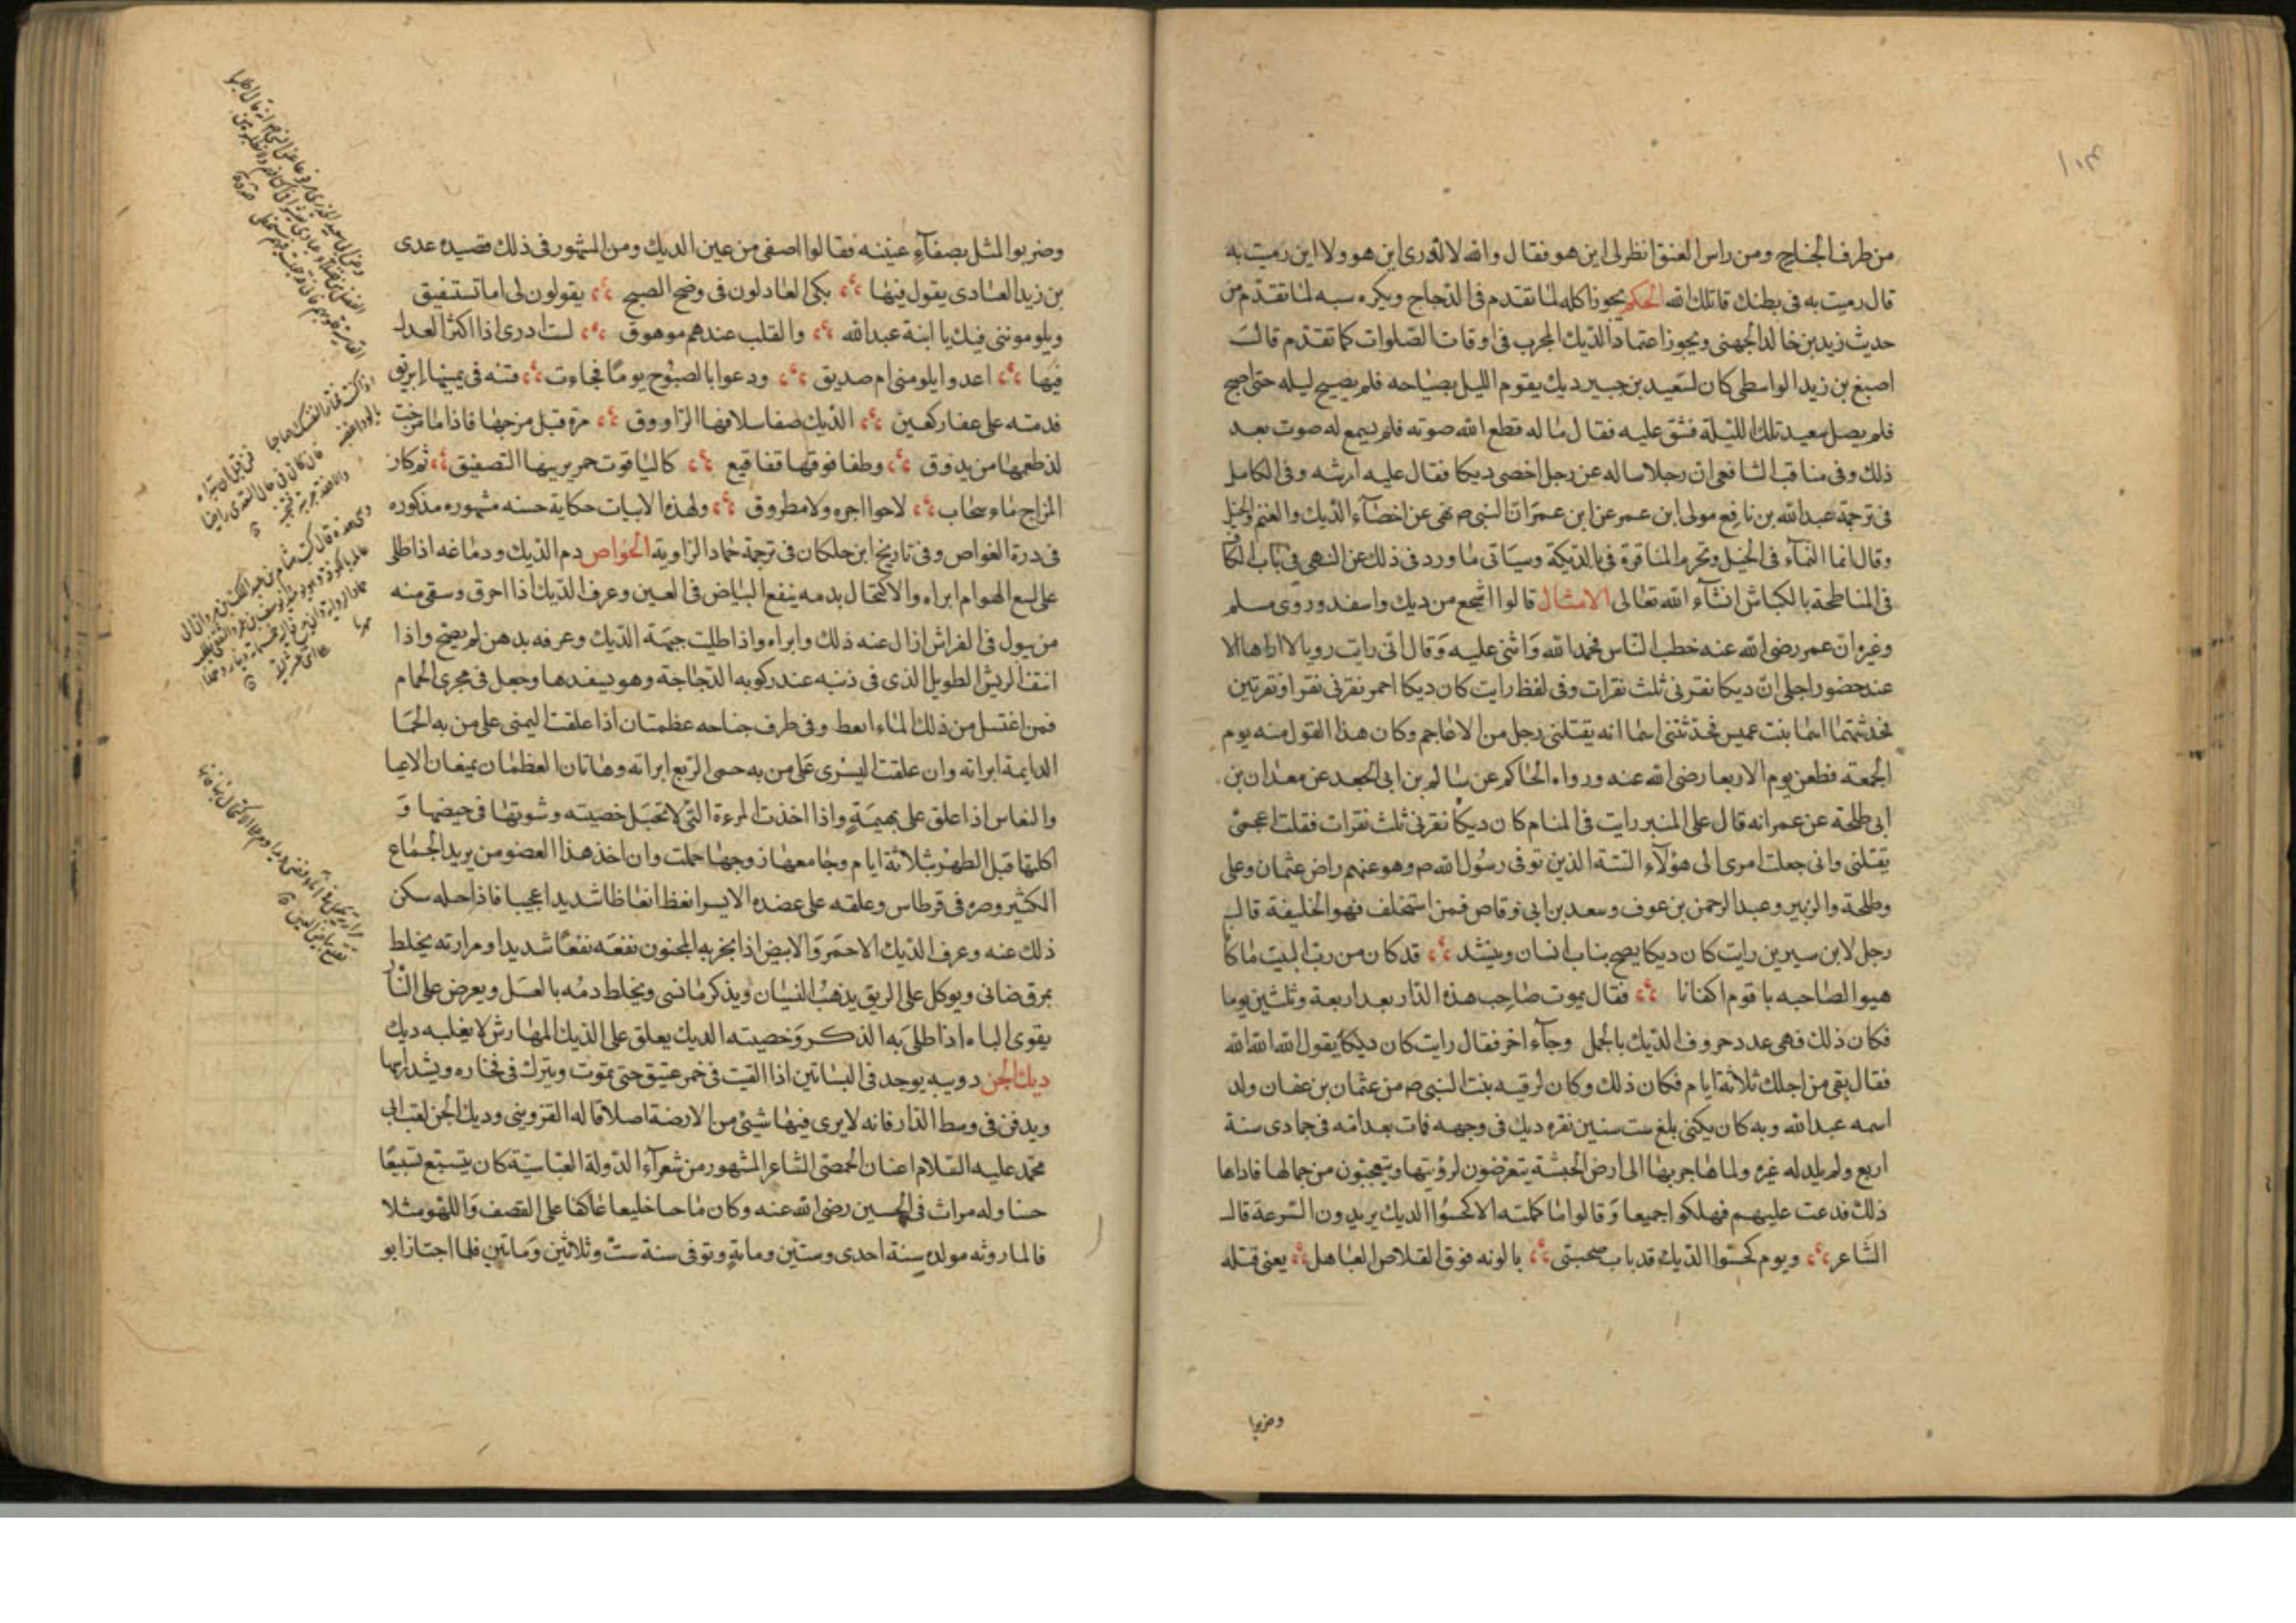 من طرف الجناح ومن راس العنق انظر لى اين هو فقال والله لا ادرى اين هو ولا اين رميت به
قال رميت به فى بطنك قاتلك الله الحكم يجوز اكله لما تقدم فى الدجاج ويكره سبه لما تقدم من
حديث زيد بن خالد الجهنى ويجوز اعتماد الديك المجرب فى اوقات الصلوات كما تقدم قالت
اصبغ بن زيد الواسطى كان لسعيد بن جبير ديك يقوم الليل بصياحه فلم يصيح ليله حتى اصبح
فلم يصل سعيد تلك الليلة فشق عليه فقال ما له قطع الله صوته فلم يسمع له صوت بعد
ذلك وفى مناقب الشافعى ان رجلا ساله عن رجل اخصى ديكا فقال عليه ارشه وفى الكامل
فى ترجمة عبد الله بن نافع مولى ابن عمر عن ابن عمر ان النبى ص نهى عن اخصآء الديك والغنم والخيل
وقال انما النمآء فى الخيل وتحرم المناقرة فى الديكة وسياتى ما ورد فى ذلك عن النهى فى باب الكاف
فى المناطحة بالكباش انشآء الله تعالى الامثال قالوا اشجع من ديك واسفد وروى مسلم
وغيره ان عمر رضى الله عنه خطب الناس فحمد الله واثنى عليه وقال انى رايت رويا لا اراها الا
عند حضور اجلى ان ديكا نقرنى ثلث نقرات وفى لفظ رايت كان ديكا احمر نقرنى نقرا او نقرتين
فحدثتها اسما بنت عميس فحدثتنى اسما انه يقتلنى رجل من الاعاجم وكان هذا القول منه يوم
الجمعة فطعن يوم الاربعا رضى الله عنه ورواه الحاكم عن سالم بن ابى الجعد عن معدان بن
ابى طلحة عن عمر انه قال على المنبر رايت فى المنام كان ديكا نقرنى ثلث نقرات فقلت اعجمى
يقتلنى وانى جعلت امرى الى هؤلآء الستة الذين توفى رسول الله ص وهو عنهم راض عثمان وعلى
وطلحة والزبير وعبد الرحمن بن عوف وسعد بن ابى وقاص فمن استخلف فهو الخليفة قالـ
رجل لابن سيرين رايت كان ديكا يصيح بباب انسان وينشد قد كان من رب البيت ما كا
هيوا لصاحبه يا قوم اكفانا فقال يموت صاحب هذه الدار بعد اربعة وثلثين يوما
فكان ذلك فهى عدد حروف الديك بالجمل وجآء اخر فقال رايت كان ديكا يقول الله الله الله
فقال بقى من اجلك ثلاثة ايام فكان ذلك وكان لرقيه بنت النبى ص من عثمان بن عفان ولد
اسمه عبد الله وبه كان يكنى بلغ ست سنين نقره ديك فى وجهه فمات بعد امه فى جمادى سنة
اربع ولم يلد له غيره ولما هاجر بها الى ارض الحبشة يتعرضون لرؤيتها ويتعجبون من جمالها فاذاها
ذلك فدعت عليهم فهلكوا جميعا وقالوا ما كلمته الا كحسوا الديك يريدون السرعة قالـ
الشاعر ويوم كحسوا الديك قد بات صحبتى يعنى قتله
وضربوا
وضربوا المثل بصفآء عيننه فقالوا اصفى من عين الديك ومن المشهور فى ذلك قصيده عدى
بن زيد العبادى يقول فيها بكى العادلون فى وضح الصبح يقولون لى اما تستفيق
ويلومونى فيك يا ابنة عبد الله والقلب عندهم موهوق لست ادرى اذا اكثر العدلـ
فيها اعدوا يلومنى ام صديق ودعوا بالصبوح يوما فجاءت قتنه فى يمينها ابريق
قدمته على عقار كعين الديك صفا سلافها الراووق مزة قبل مزجها فاذا ما مزجت
لذ طعمها من يذوق وطفا فوقها فقاقيع كاليا قوت حمر يرينها التصفيق ثم كان
المزاج ماء سحاب لا حوا اجره ولا مطروق ولهذه الابيات حكاية حسنه مشهوره مذكوره
فى درة الغواص وفى تاريخ ابن خلكان فى ترجمة حماد الراوية الخواص دم الديك ودماغه اذا طلى
على لسع الهوام ابراه والاكتحال بدمه ينفع البياض فى العين وعرف الديك اذا احرق وسقى منه
من يبول فى الفراش ازال عنه ذلك وابراه واذا طليت جبهة الديك وعرفه بدهن لم يصح واذا
انتف الريش الطويل الذى فى ذنبه عند ركوبه الدجاجة وهو يسفدها وجعل فى مجرى الحمام
فمن اغتسل من ذلك الماء انعط وفى طرف جناحه عظمتان اذا علقت اليمنى على من به الحما
الدايمة ابراته وان علقت اليسرى على من به حمى الربع ابراته وهاتان العظمان يمنعان الاعيا
والنعاس اذا علق على بهيمة واذا اخذت المرءة التى لا تحبل خصيته وشوتها فى حيضها و
اكلتها قبل الطهر بثلاثة ايام وجامعها زوجها حملت وان اخذ هذا العضو من يريد الجماع
الكثير وصره فى قرطاس وعلقه على عضده الايسر انعظ انعاظا شديدا عجيبا فاذا حله سكن
ذلك عنه وعرف الديك الاحمر والابيض اذا بخر به المجنون نفعه نفعا شديدا ومرارته يخلط
بمرق ضانى ويوكل على الريق يذهب النسيان ويذكر ما نسى ويخلط دمه بالعسل ويعرض على النار
يقوى الباه اذا طلى به الذكر وخصيته الديك يعلق على الديك المهارش لا يغلبه ديك
ديك الجن دويبه يوجد فى البساتين اذا القيت فى خمر عتيق حتى يموت ويترك فى فخاره ويشد راسها
ويدفن فى وسط الدار فانه لا يرى فيها شيئ من الارضة اصلا قاله القزوينى وديك الجن لقب ابى
محمد عليه السلام الحمصى الشاعر المشهور من شعرآء الدولة العباسية كان يتسبع تسبيعا
حسنا وله مراث فى الحسين رضى الله عنه وكان ماحسا خليعا عاكفا على القصف واللهو مثلا
فالما روثه مولده سنة احدى وستين وماية وتوفى سنة ست وثلاثين وماتين فلما اجتاز ابو